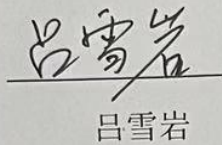 吕雪岩
吕雪岩